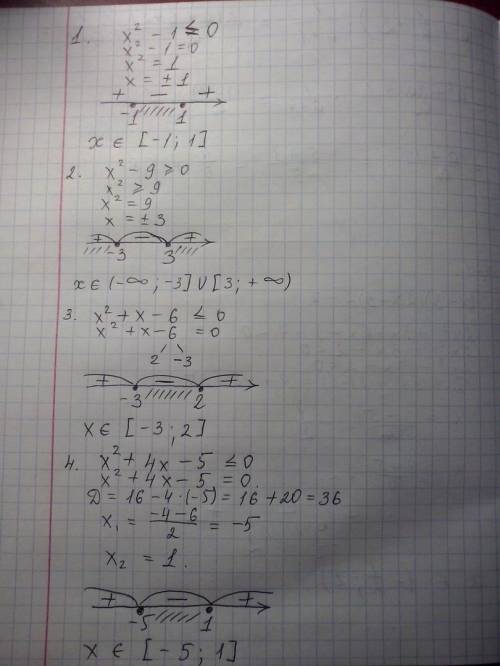 1. x² - 1 ≤ 0
x² - 1 = 0
x² = 1
x = ± 1
+ - +
-1 1
x ∈ [-1; 1]
2. x² - 9 ≥ 0
x² ≥ 9
x² = 9
x = ± 3
+ - +
-3 3
x ∈ (-∞; -3] ∪ [3; +∞)
3. x² + x - 6 ≤ 0
x² + x - 6 = 0
2 -3
+ - +
-3 2
x ∈ [-3; 2]
4. x² + 4x - 5 ≤ 0
x² + 4x - 5 = 0.
D = 16 - 4·(-5) = 16 + 20 = 36
x₁ = (-4-6)/2 = -5
x₂ = 1.
+ - +
-5 1
x ∈ [-5; 1]